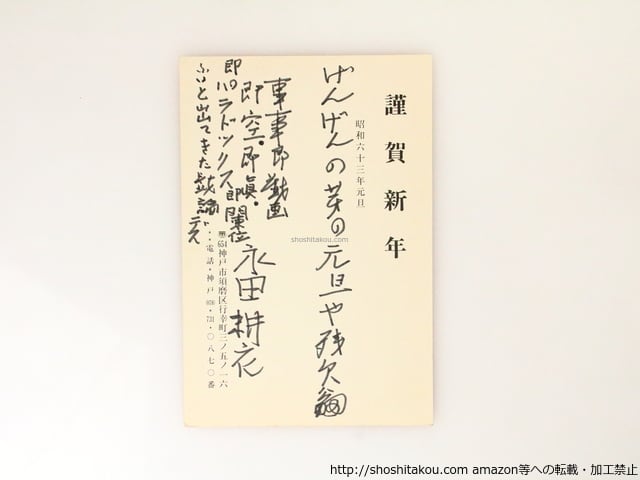 謹賀新年
昭和六十三年元旦
げんげんの芽の元旦や残欠翁
事事即戯画
即空・即眞・
即パラドックス即関位
ふいと出てきた戯論デス
永田耕衣
〒654 神戸市須磨区行幸町三ノ五ノ一六
電話・神戸 078・731・〇八七〇番
shoshitakou.com
http://shoshitakou.com amazon等への転載・加工禁止